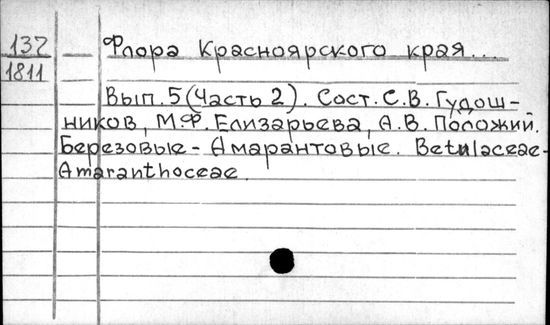 137
1811
Флора Красноярского края...
Вып. 5 (Часть 2). Сост. С.В. Гудош-
ников, М.Ф. Елизарьева, А.В. Положий.
Березовые - Амарантовые. Betulaceae-
Amaranthoceae.